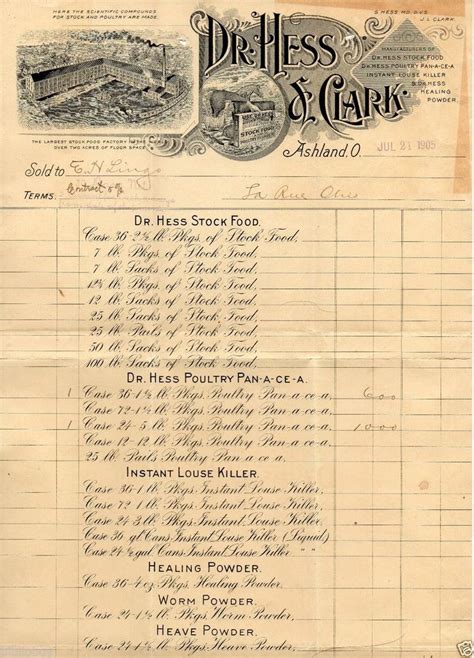 HERE THE SCIENTIFIC COMPOUNDS
FOR STOCK AND POULTRY ARE MADE.
G. HESS M.D. D.V.S.
J. L. CLARK.
DR. HESS
& CLARK.
MANUFACTURERS OF
DR. HESS STOCK FOOD
DR. HESS POULTRY PAN-A-CE-A
INSTANT LOUSE KILLER
& DR. HESS
HEALING
POWDER.
STOCK FOOD
THE LARGEST STOCK FOOD FACTORY IN THE WORLD
OVER TWO ACRES OF FLOOR SPACE.
Ashland, O.
JUL 21 1905
Sold to E H Lingo
TERMS. Contract
La Rue Ohio
DR. HESS STOCK FOOD.
Case 36-2½ lb. Pkgs. of Stock Food,
7 lb. Pkgs. of Stock Food,
7 lb. Sacks of Stock Food,
12½ lb. Pkgs. of Stock Food,
12 lb. Sacks of Stock Food,
25 lb. Sacks of Stock Food,
25 lb. Pails of Stock Food,
50 lb. Sacks of Stock Food,
100 lb. Sacks of Stock Food,
DR. HESS POULTRY PAN-A-CE-A.
1 Case 36-1½ lb. Pkgs. Poultry Pan-a-ce-a, 600
Case 72-1½ lb. Pkgs. Poultry Pan-a-ce-a,
1 Case 24-5 lb. Pkgs. Poultry Pan-a-ce-a, 1000
Case 12-12 lb. Pkgs. Poultry Pan-a-ce-a,
25 lb. Pails Poultry Pan-a-ce-a,
INSTANT LOUSE KILLER.
Case 36-1 lb. Pkgs. Instant Louse Killer,
Case 72-1 lb. Pkgs. Instant Louse Killer,
Case 24-3 lb. Pkgs. Instant Louse Killer,
Case 36 qt Cans Instant Louse Killer (Liquid)
Case 24 ½ gal Cans Instant Louse Killer " "
HEALING POWDER.
Case 36-4 oz Pkgs. Healing Powder,
WORM POWDER.
Case 24-1½ lb. Pkgs. Worm Powder,
HEAVE POWDER.
Case 24-1½ lb. Pkgs. Heave Powder,